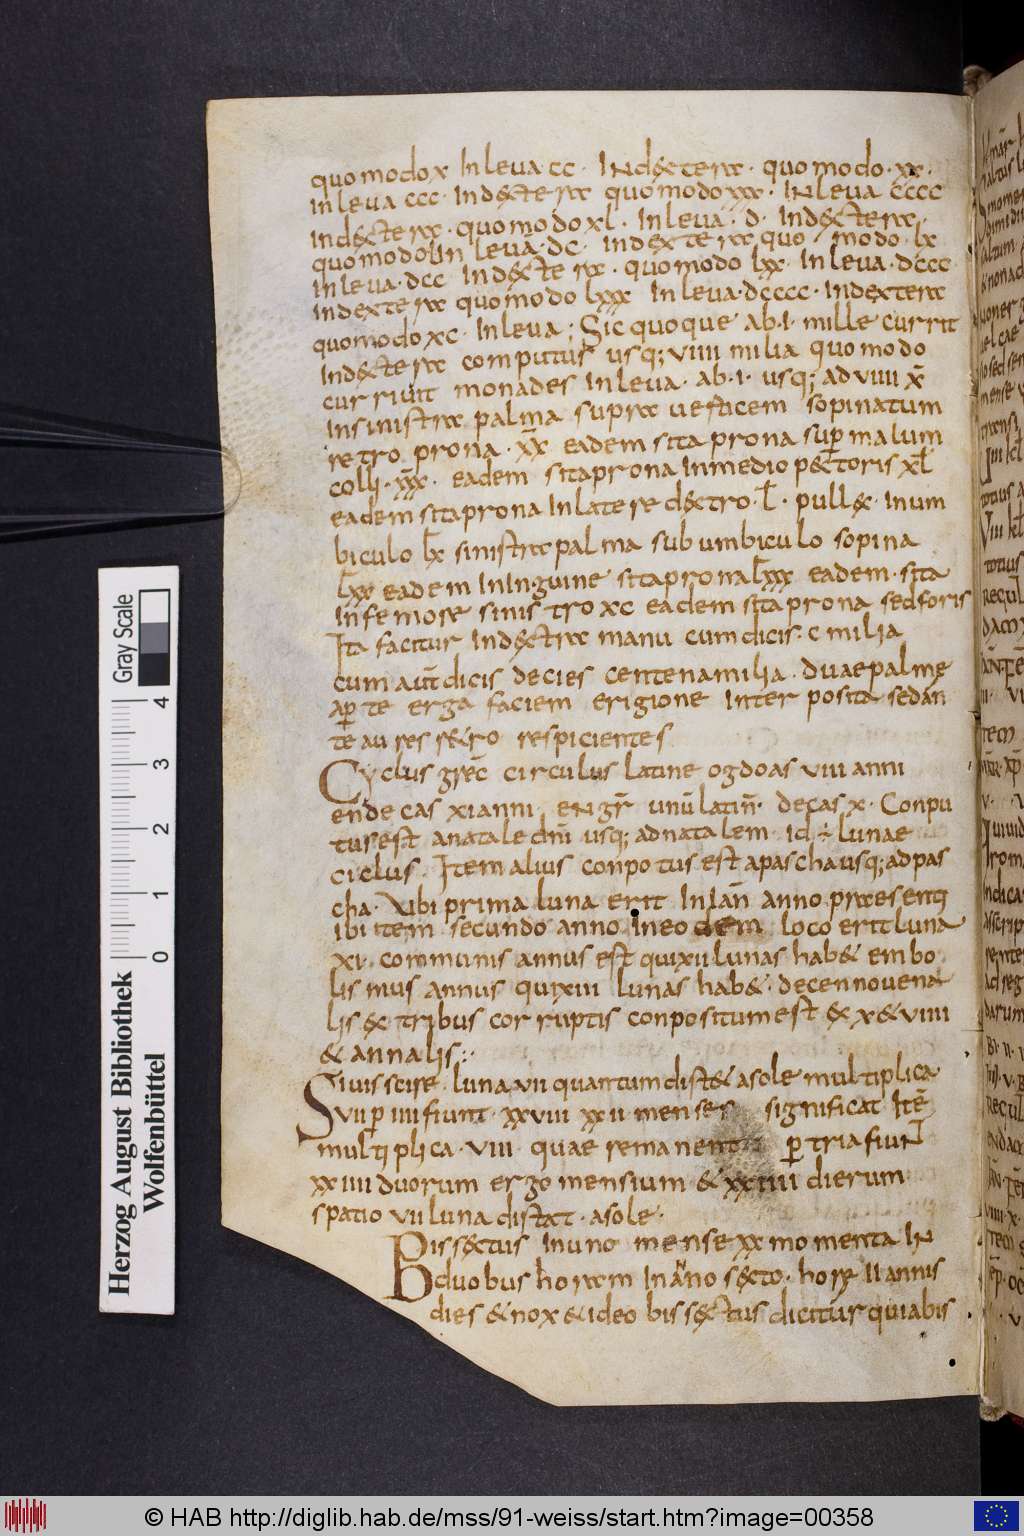 quomodo x In leva cc · INdextera · quomodo · xx ·
in leva ccc · Indextera quomodo xxx · INleva cccc
Indextera · quomodo xl · In leva · d · Indextera ·
quomodo l In leva · dc · indextera quo modo · lx
Inleva · dcc Indextera · quomodo lxx · Inleva · dccc
Indextera quomodo lxxx Inleva · dcccc · Indextera
quomodo xc · Inleva ; Sic quoque ab · i · mille currit
Indextera computus usq; viiii milia quomodo
currunt monades Inleva · ab · i · usq; ad viiii x̄
Insinistra palma supra verticem sopinatum
retro prona · x̄x̄ eadem sita prona suꝑ malum
colli · x̄x̄x̄ · eadem sita prona Inmedio pectoris x̄l̄
eadem sita prona Inlatere dextro · l̄ · pull& · Inum
biculo l̄x̄ sinistra palma sub umbiculo sopina
l̄xx eadem In Inguine sita prona l̄xxx eadem · sita
Infemore sinistro xc eadem sita prona sed foris
Ita facitur Indextra manu cum dicis · c milia
cum aut̄ dicis decies centena milia · duae palme
aꝑte erga faciem erigione Inter posita sedan
te aures retro respicientes
Cyclus grec̄ circulus latine ogdoas viii anni
endecas xi anni · eN gr̄ unū latin̄ · decas x · Conpu
tus est anatale dn̄i usq; adnatalem id ÷ lunae
ciclus · Item alius conpotus est apascha usq; adpas
cha · Vbi prima luna erit In Ian̄ anno praesenti
ibi item secundo anno In eodem loco erit luna
xi · communis annus est qui xii lunas hab& embo
lismus annus qui xiii lunas hab& · decennovena
lis ex tribus corruptis conpositum est ex x & viiii
& annalis :·
Si vis scire · luna vii quantum dist& a sole multiplica
vii ꝑ iiii fiunt · xxviii xxii menses significat Itē
multiplica · viii · quae remanent ꝑ tria fiuN̄t
xxiiii duorum ergo mensium & xxiiii dierum
spatio vii luna distat · a sole ·
Bissextus In uno mense xx momenta IN
duobus horam In anno sexto · horae II annis
dies & nox & ideo bissextus dicitur quia bis
Gray Scale
0 1 2 3 4
Herzog August Bibliothek
Wolfenbüttel
© HAB http://diglib.hab.de/mss/91-weiss/start.htm?image=00358